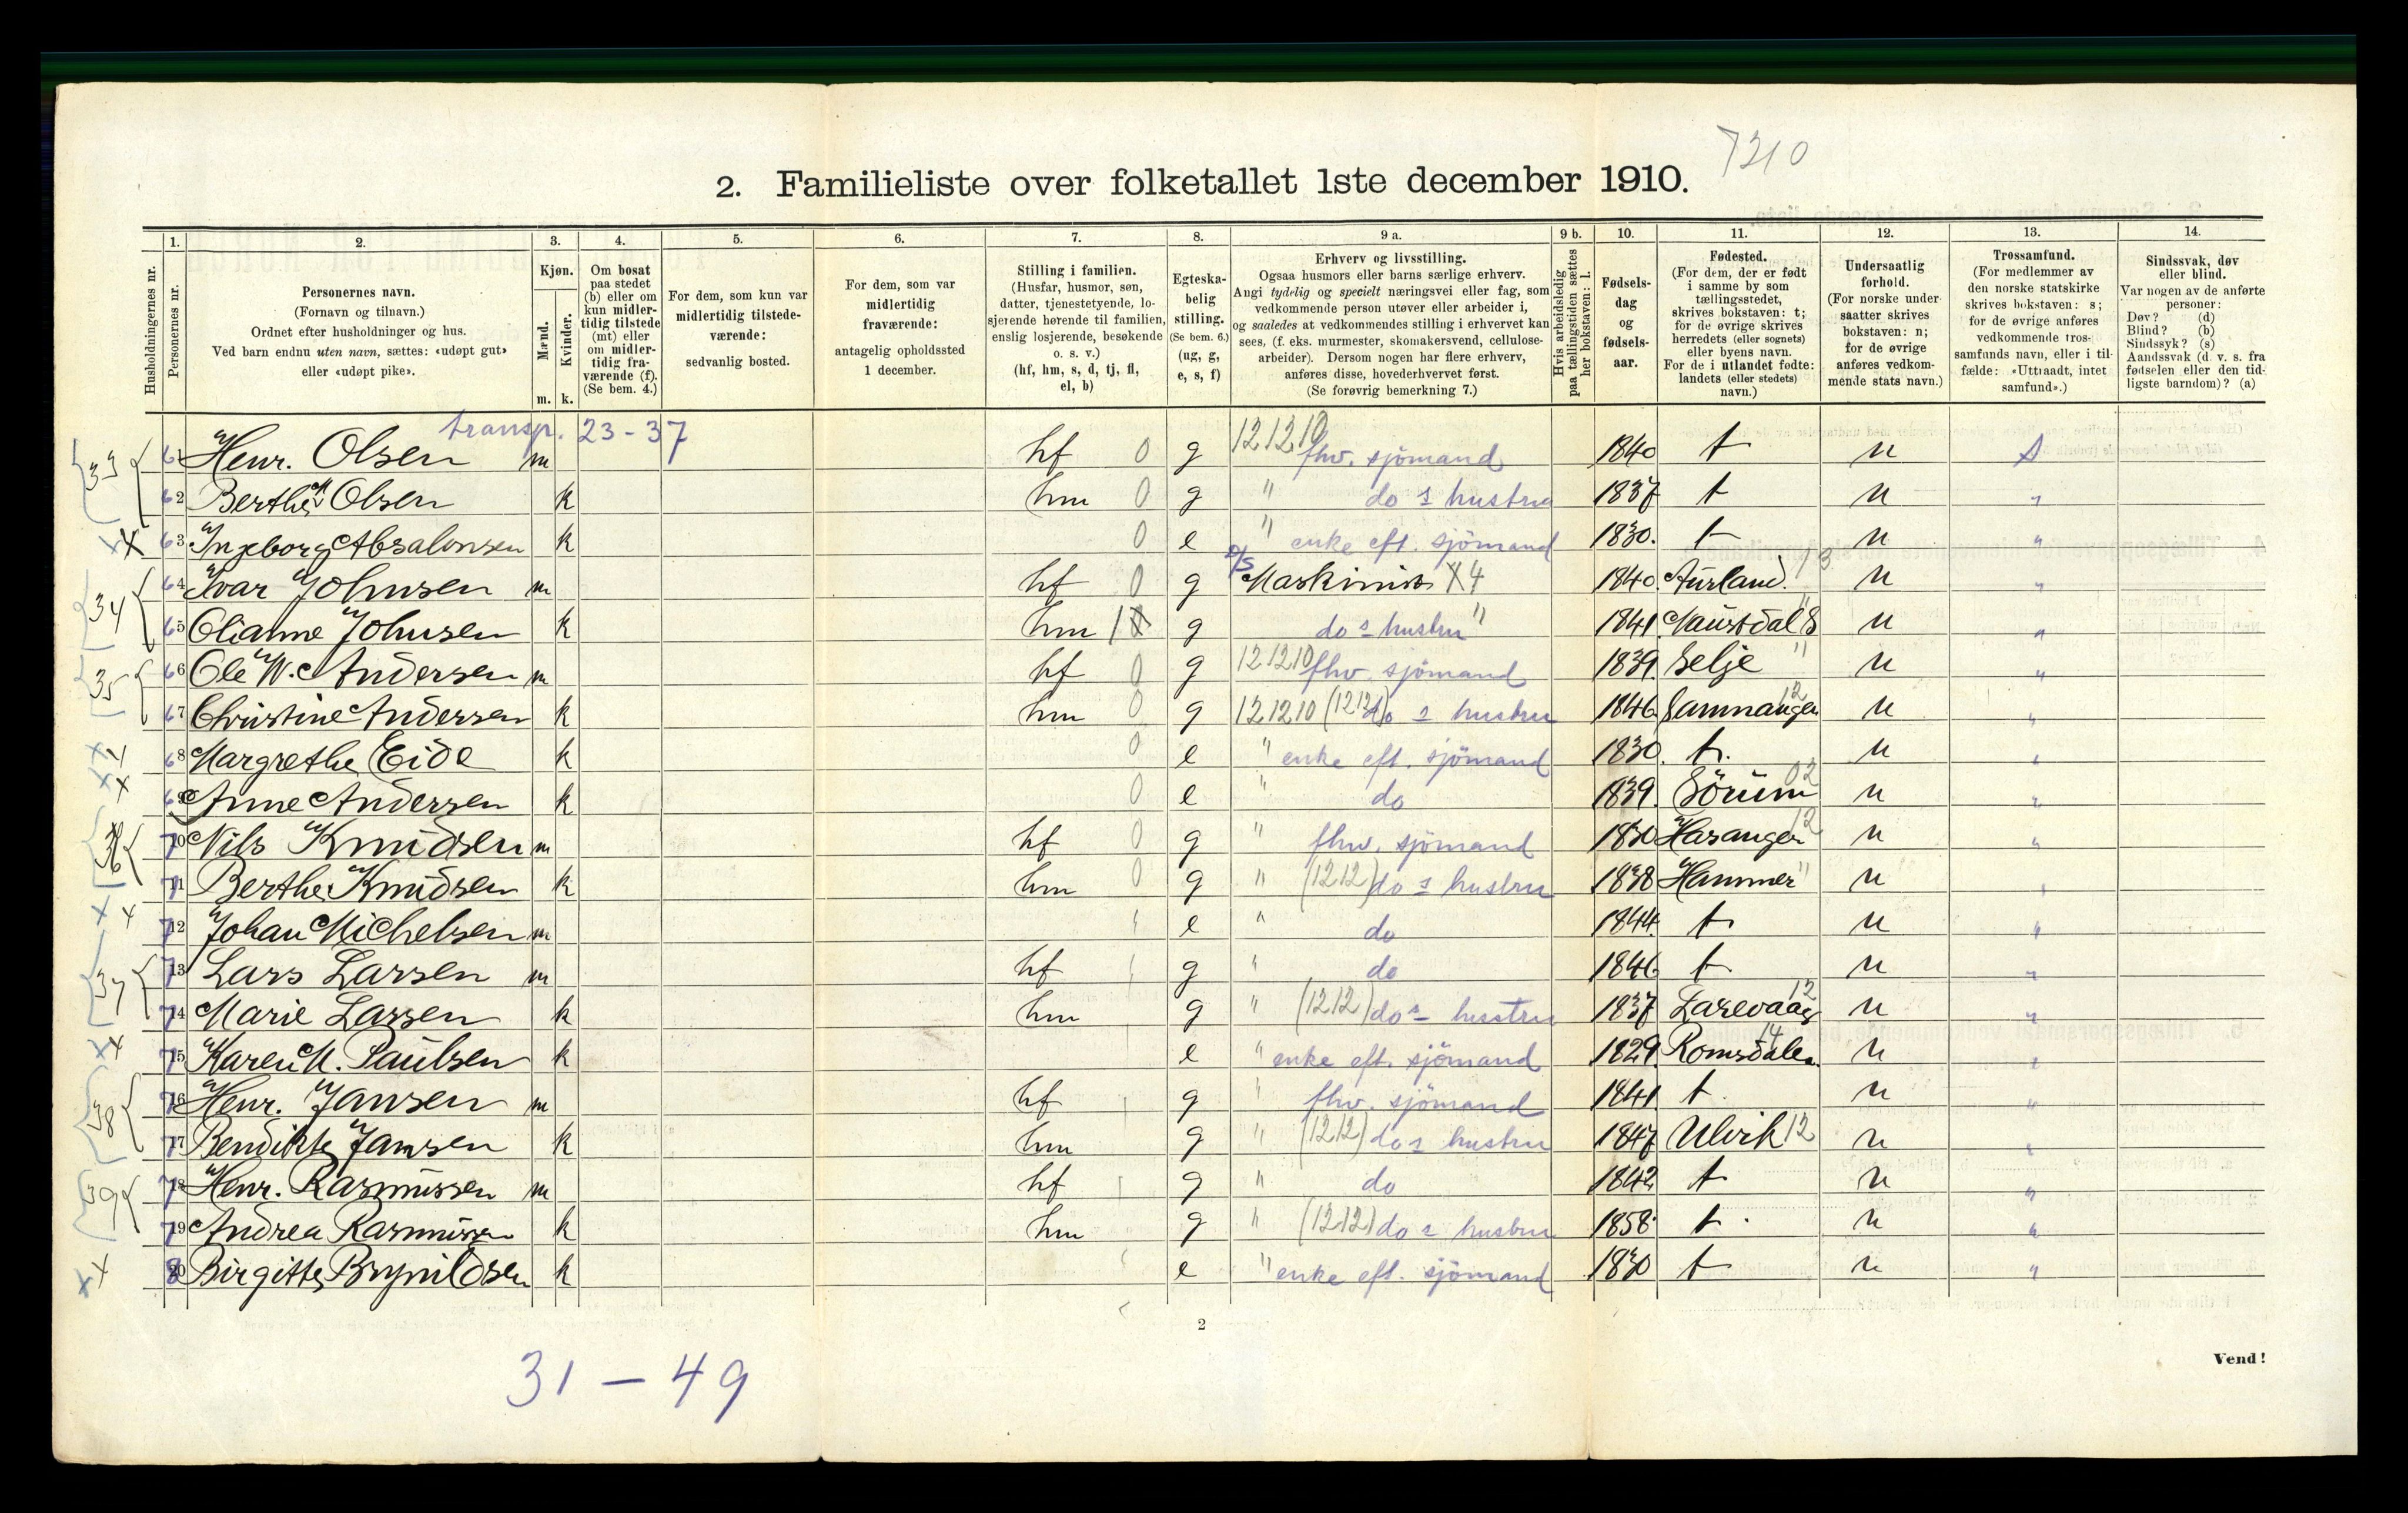 7210
2. Familieliste over folketallet 1ste december 1910.
Husholdningernes nr.
1. Personernes nr.
2. Personernes navn.
(Fornavn og tilnavn.)
Ordnet efter husholdninger og hus.
Ved barn endnu uten navn, sættes: «udøpt gut»
eller «udøpt pike».
3. Kjøn.
Mænd. Kvinder.
m. k.
4. Om bosat
paa stedet
(b) eller om
kun midler-
tidig tilstede
(mt) eller
om midler-
tidig fra-
værende (f).
(Se bem. 4.)
5. For dem, som kun var
midlertidig tilstede-
værende:
sedvanlig bosted.
6. For dem, som var
midlertidig
fraværende:
antagelig opholdssted
1 december.
7. Stilling i familien.
(Husfar, husmor, søn,
datter, tjenestetyende, lo-
sjerende hørende til familien,
enslig losjerende, besøkende
o. s. v.)
(hf, hm, s, d, tj, fl,
el, b)
8. Egteska-
belig
stilling.
(Se bem. 6.)
(ug, g,
e, s, f)
9 a. Erhverv og livsstilling.
Ogsaa husmors eller barns særlige erhverv.
Angi tydelig og specielt næringsvei eller fag, som
vedkommende person utøver eller arbeider i,
og saaledes at vedkommendes stilling i erhvervet kan
sees, (f. eks. murmester, skomakersvend, cellulose-
arbeider). Dersom nogen har flere erhverv,
anføres disse, hovederhvervet først.
(Se forøvrig bemerkning 7.)
9 b. Hvis arbeidsledig
paa tællingstiden sættes
her bokstaven: l.
10. Fødsels-
dag
og
fødsels-
aar.
11. Fødested.
(For dem, der er født
i samme by som
tællingsstedet,
skrives bokstaven: t;
for de øvrige skrives
herredets (eller sognets)
eller byens navn.
For de i utlandet fødte:
landets (eller stedets)
navn.)
12. Undersaatlig
forhold.
(For norske under-
saatter skrives
bokstaven: n;
for de øvrige
anføres vedkom-
mende stats navn.)
13. Trossamfund.
(For medlemmer av
den norske statskirke
skrives bokstaven: s;
for de øvrige anføres
vedkommende tros-
samfunds navn, eller i til-
fælde: «Uttraadt, intet
samfund».)
14. Sindssvak, døv
eller blind.
Var nogen av de anførte
personer:
Døv? (d)
Blind? (b)
Sindssyk? (s)
Aandssvak (d. v. s. fra
fødselen eller den tid-
ligste barndom)? (a)
transp. 23-37
33 61 Henr. Olsen m hf 0 g 121210 fhv. sjömand 1840 t n s
62 Berthe M Olsen k hm 0 g " do s hustru 1837 t n "
x 63 Ingeborg Absalonsen k 0 e " enke eft. sjömand 1830. t n "
34 64 Ivar Johnsen m hf 0 g D/S Maskinist X4 1840. Aurland. 13 n "
65 Olianne Johnsen k hm g do s hustru " 1841. Naustdal S " n "
35 66 Ole W. Andersen m hf 0 g 121210 fhv. sjömand 1839. Selje " n "
67 Christine Andersen k hm 0 g 121210 (1212) do s hustru 1846 Samnanger 12 n "
x 68 Margrethe Eide k 0 e " enke eft. sjömand 1830. t. n "
x 69 Anne Andersen k 0 e " do 1839. Sörum 02 n "
36 70 Nils Knudsen m hf 0 g " fhv. sjömand 1830 Hasanger 12 n "
71 Berthe Knudsen k hm 0 g " (1212) do s hustru 1838 Hammer " n "
x 72 Johan Michelsen m e " do 1844. t n "
37 73 Lars Larsen m hf g " do 1846 t n "
74 Marie Larsen k hm g " (1212) do s hustru 1837 Larevaag 12 n "
x 75 Karen M. Paulsen k e " enke eft. sjömand 1829. Romsdalen 14 n "
38 76 Henr. Jansen m hf g " fhv. sjömand 1841. t. n "
77 Bendikte Jansen k hm g " (1212) do s hustru 1847 Ulvik 12 n "
39 78 Henr. Rasmussen m hf g " do 1842 t n "
79 Andrea Rasmussen k hm g " (1212) do s hustru 1858. t. n "
x 80 Birgitte Brynildsen k e " enke eft. sjömand 1830 t n "
2
Vend!
31 - 49